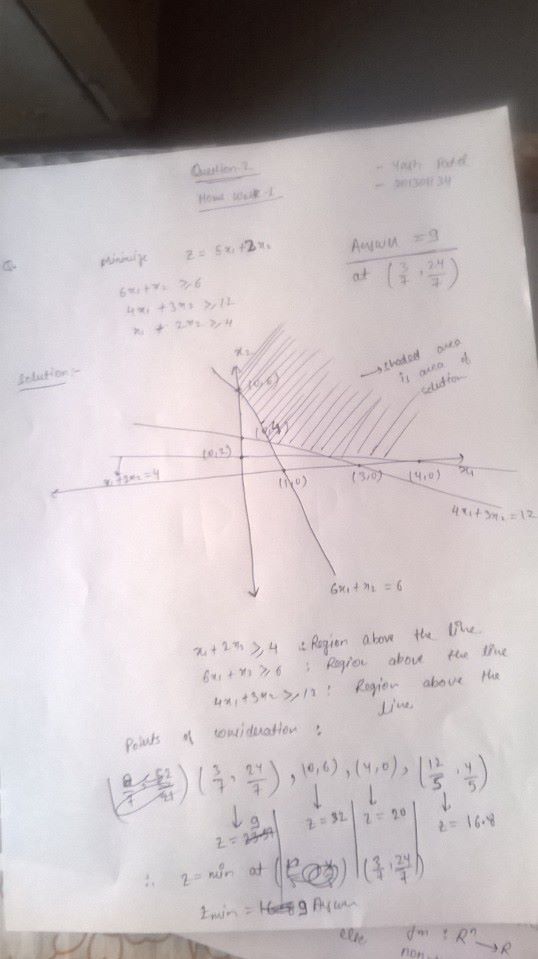 Question-2
Home Work-1
- Yash Patel
Q. Minimize z = 5x₁+2x₂
6x₁+x₂ ≥ 6
4x₁+3x₂ ≥ 12
x₁ + 2x₂ ≥ 4
Answer = 9
at (3/7, 24/7)
Solution:-
x₂
(0,6)
→ shaded area
is area of
solution
(0,2)
x₁+2x₂=4
(1,0)
(3,0)
(4,0)
x₁
4x₁+3x₂=12
6x₁+x₂ = 6
x₁+2x₂ ≥ 4 : Region above the line
6x₁+x₂ ≥ 6 : Region above the line
4x₁+3x₂ ≥ 12 : Region above the
line
Points of consideration :
(3/7, 24/7), (0,6), (4,0), (12/5, 4/5)
z = 9 z = 32 z = 20 z = 16.8
∴ z = min at (3/7, 24/7)
zmin = 9 Answer
else fm : Rⁿ → R
non-